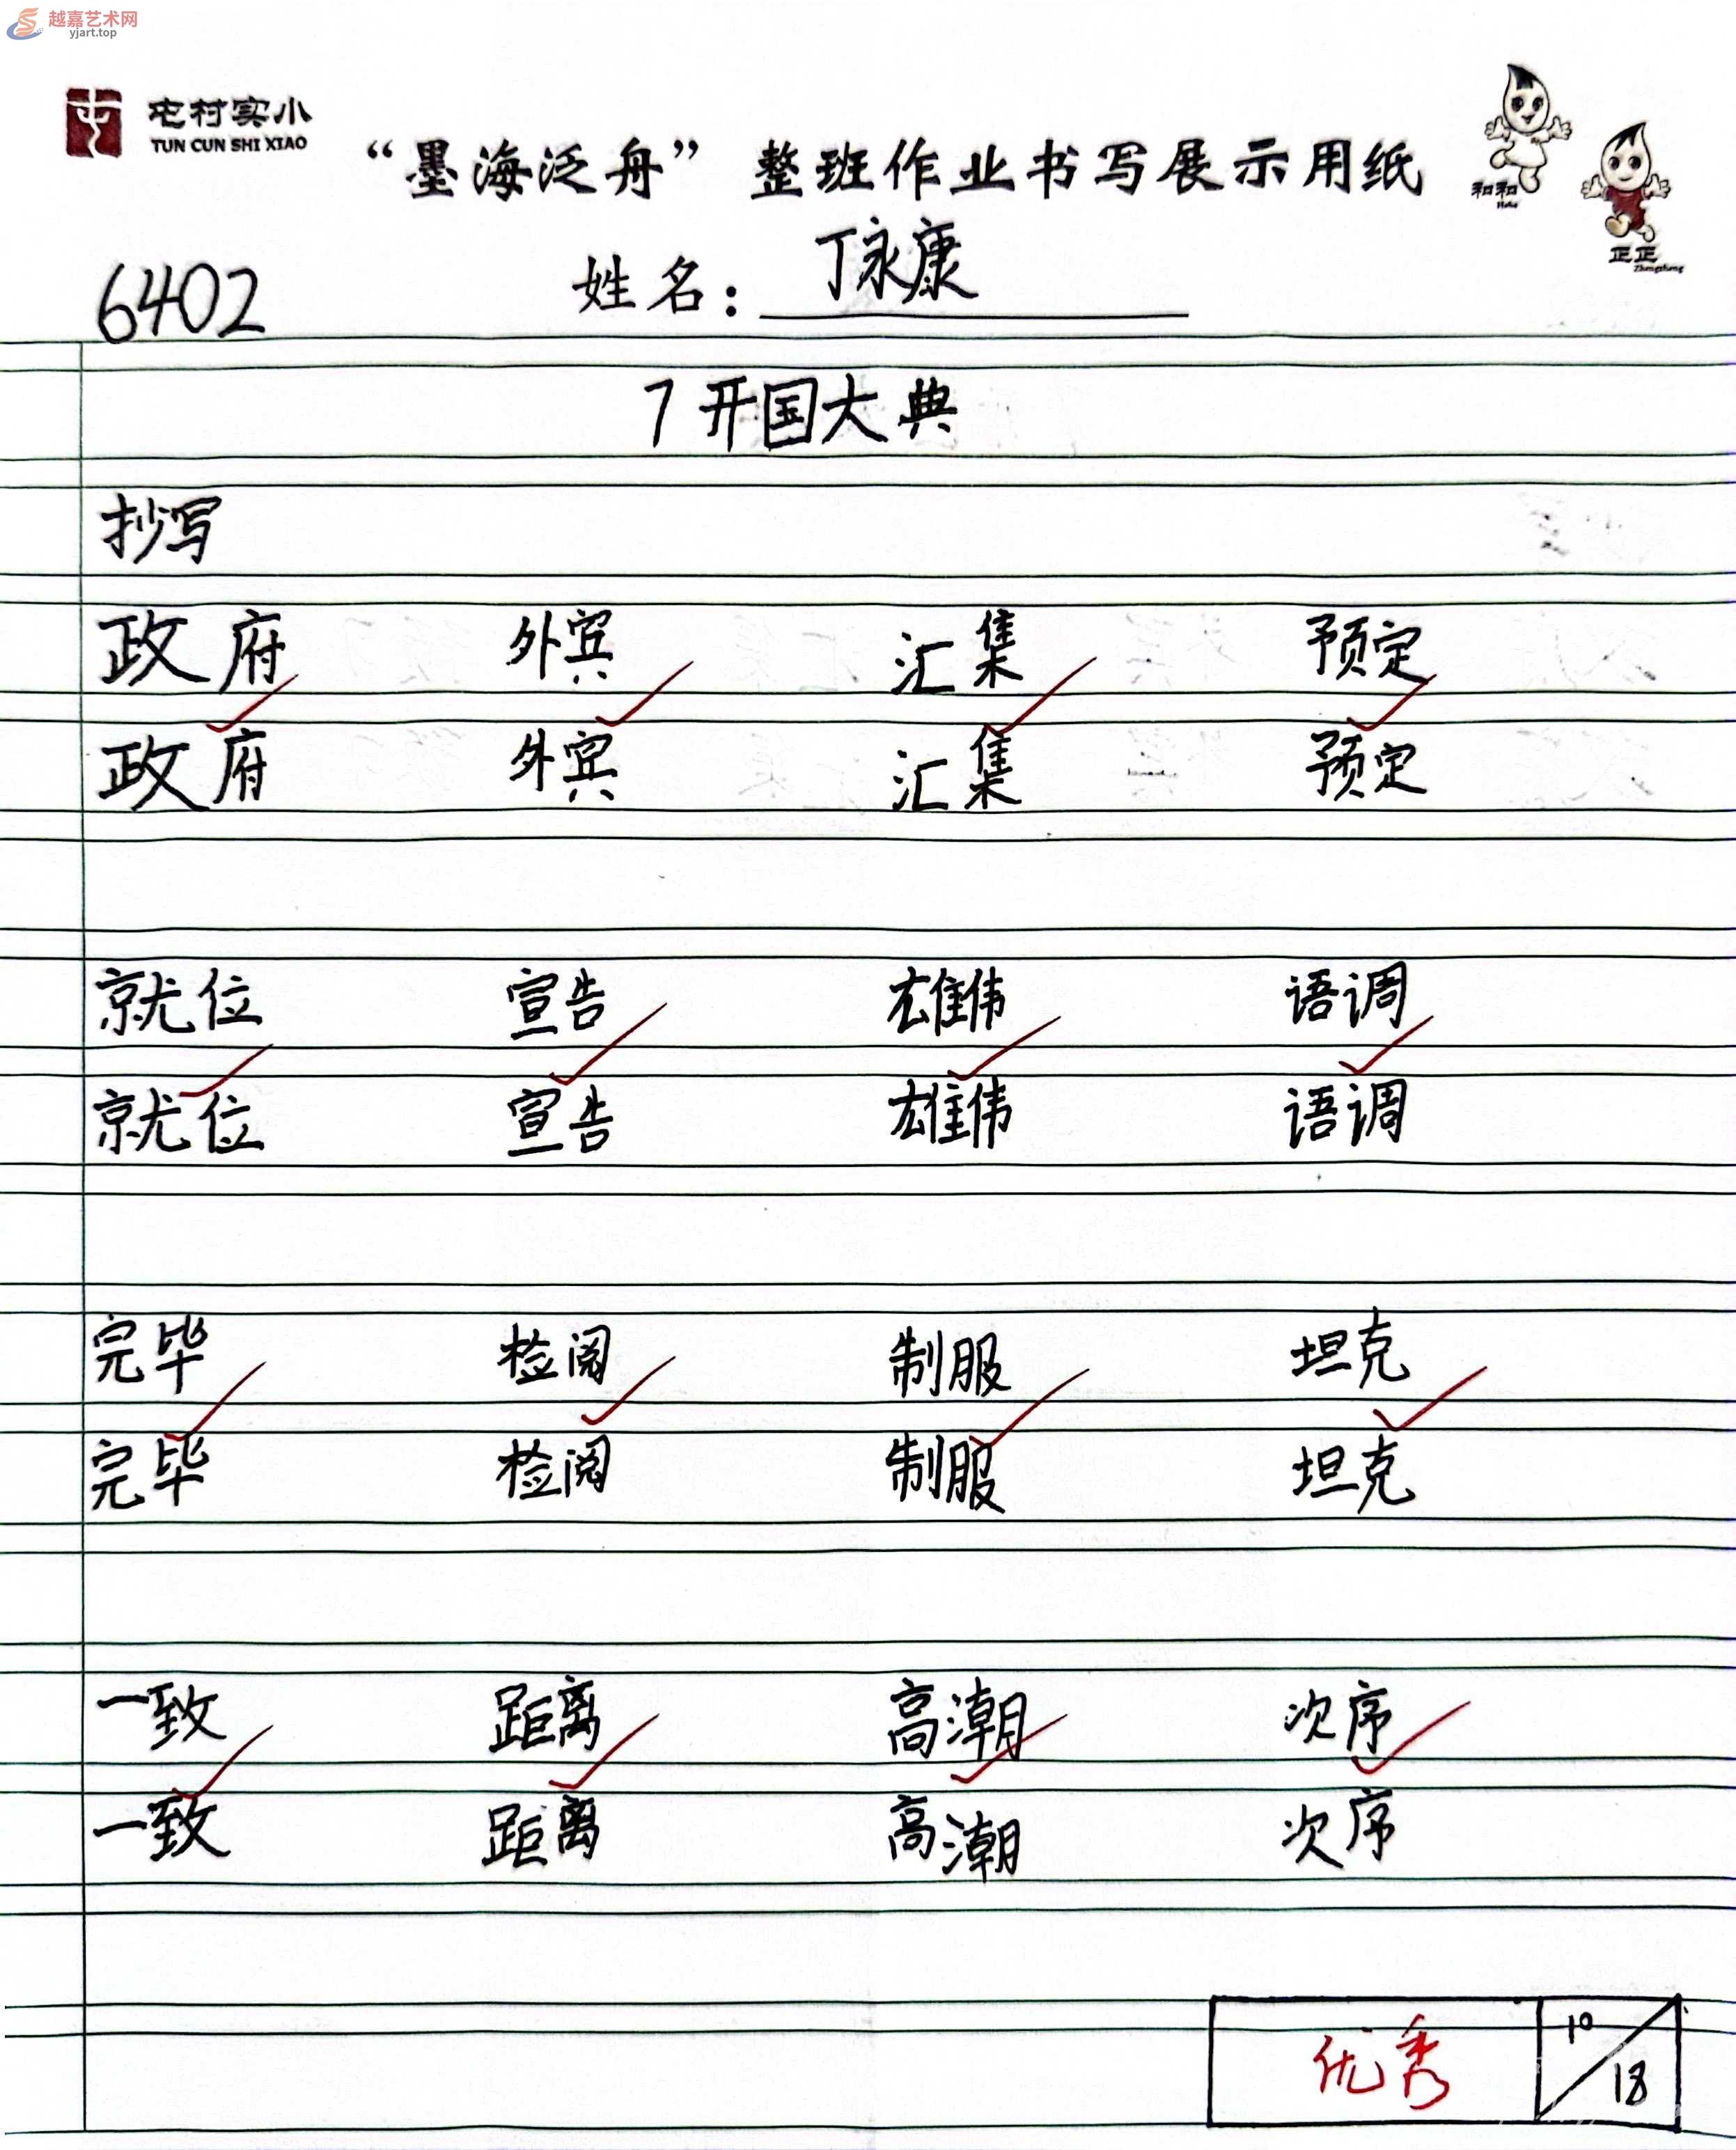 越嘉艺术网
yjart.top
屯村实小
TUN CUN SHI XIAO
“墨海泛舟” 整班作业书写展示用纸
和和
Hehe
正正
Zhengzheng
6402 姓名：丁永康
7 开国大典
抄写
政府 外宾 汇集 预定
政府 外宾 汇集 预定
就位 宣告 雄伟 语调
就位 宣告 雄伟 语调
完毕 检阅 制服 坦克
完毕 检阅 制服 坦克
一致 距离 高潮 次序
一致 距离 高潮 次序
优秀 10/18